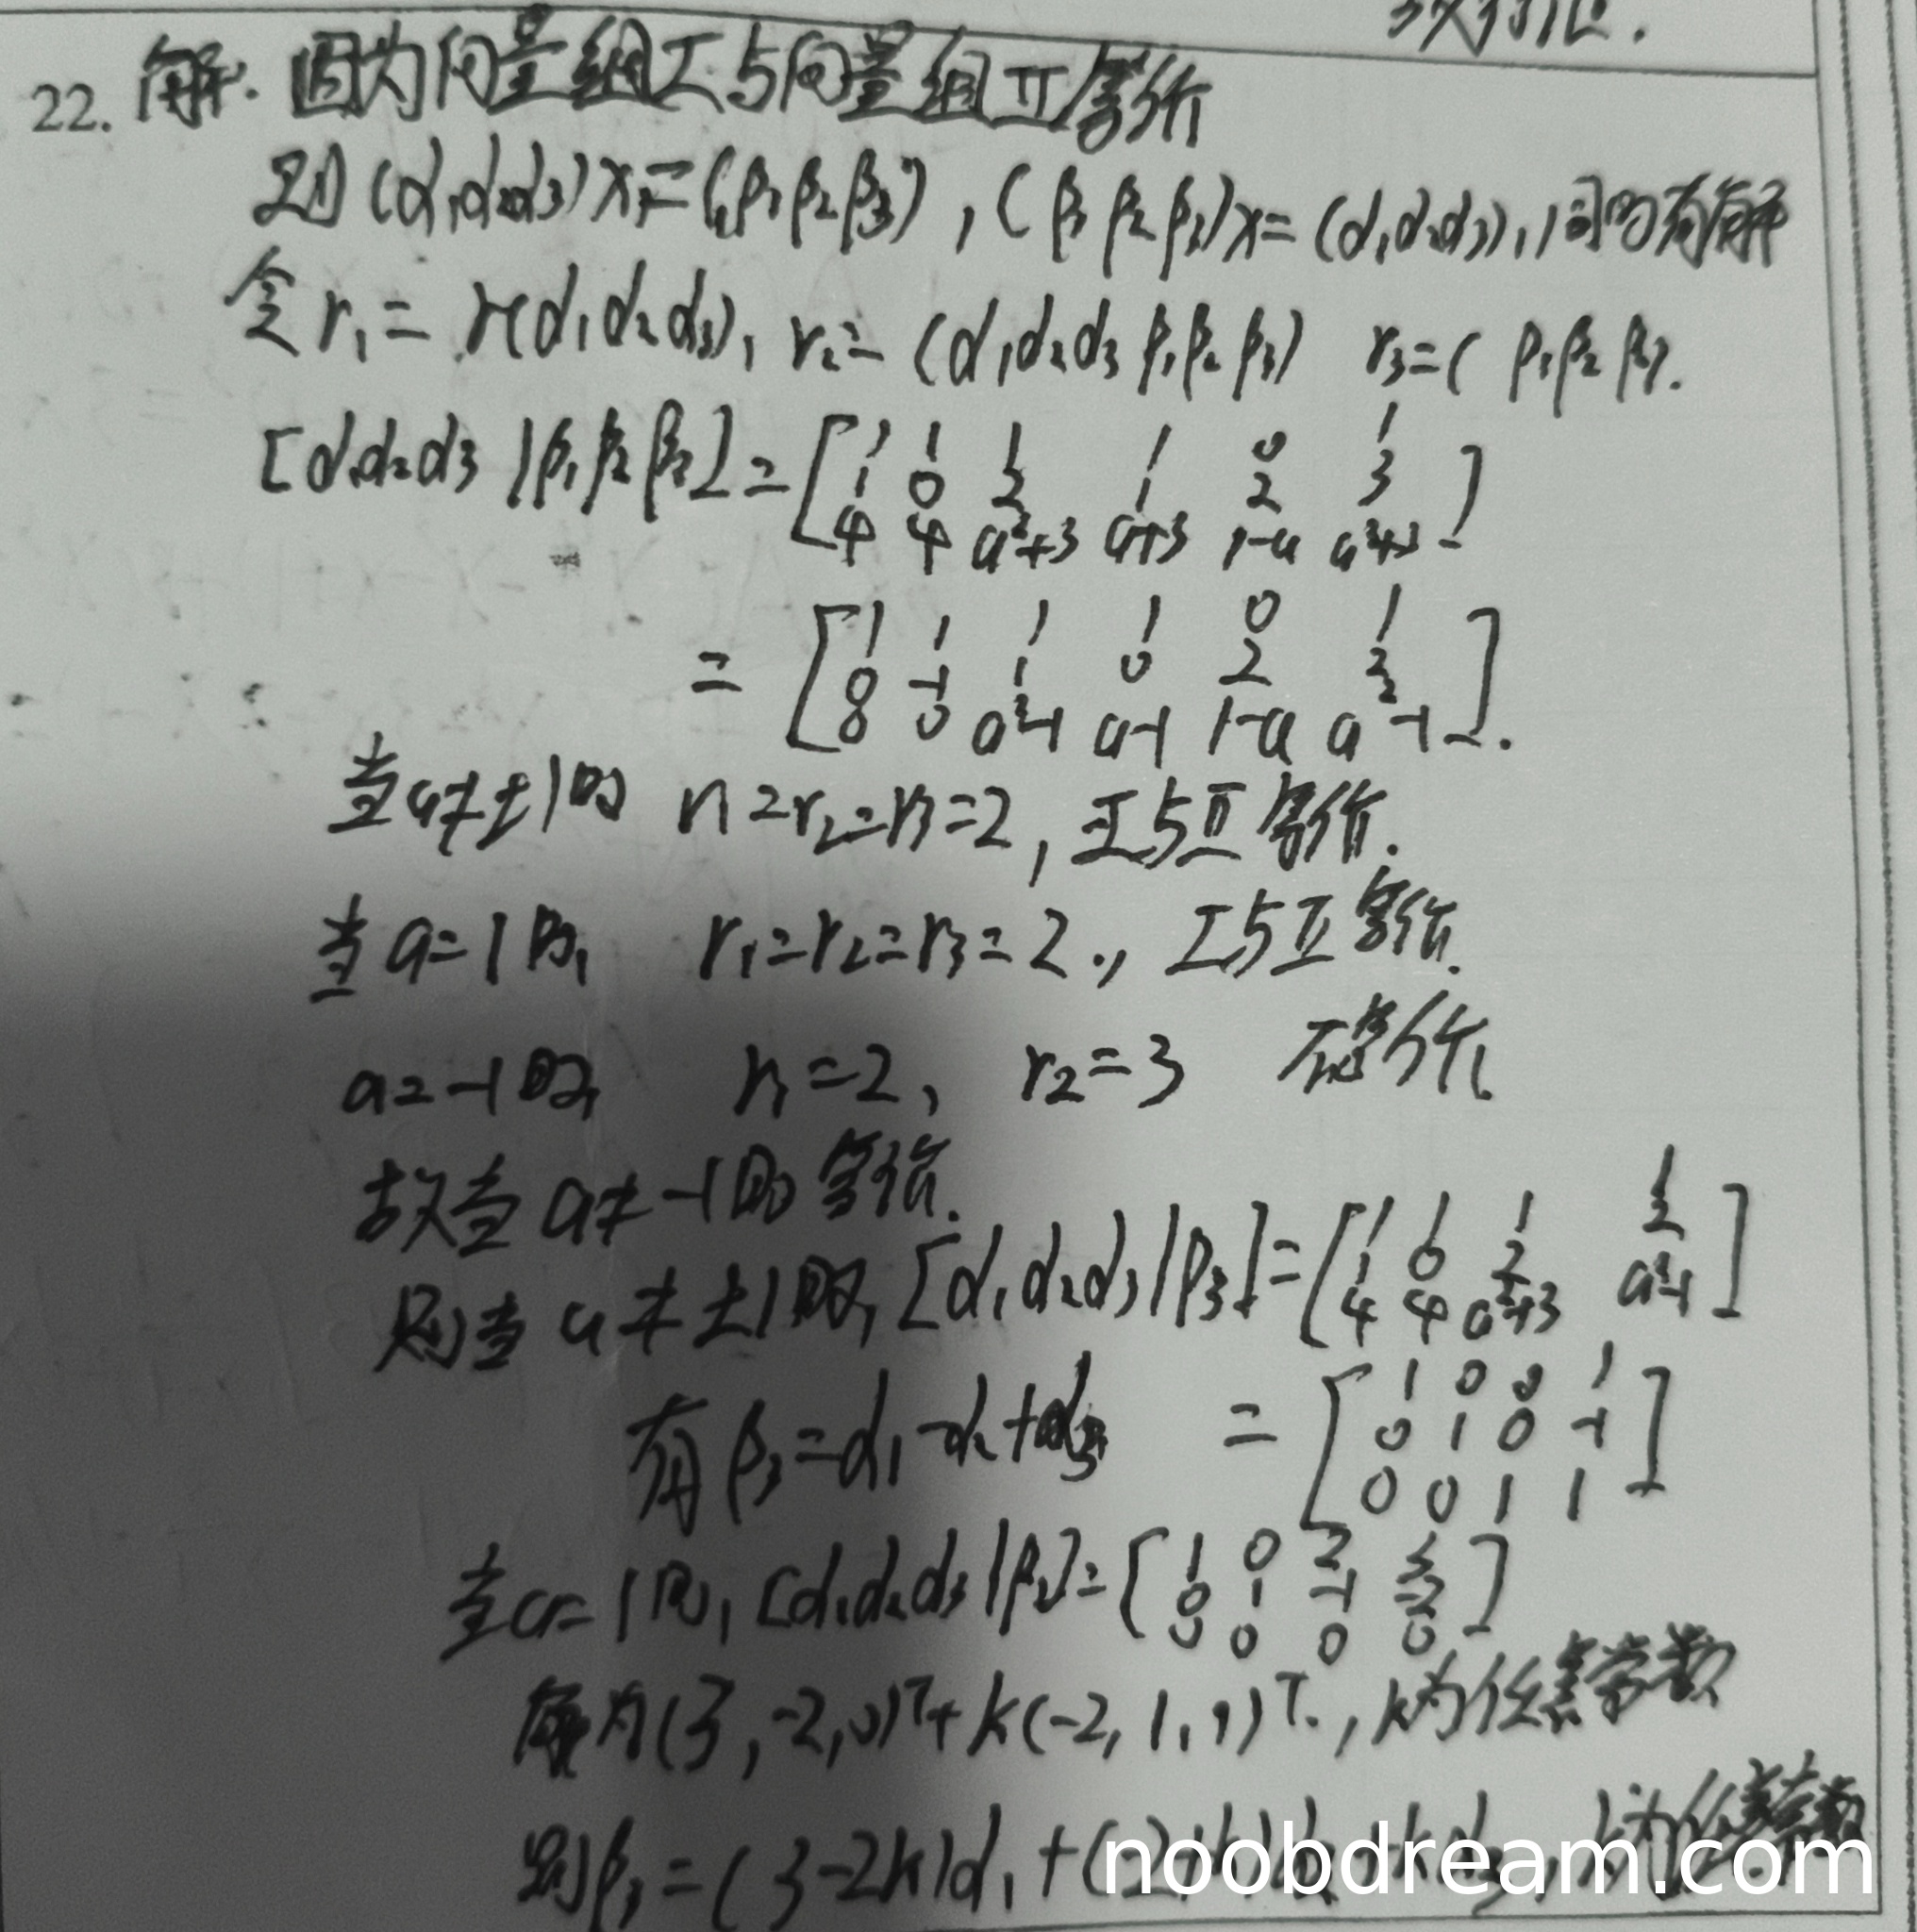 22. 解. 因为向量组I与向量组II等价
则(α1α2α3)x=(β1β2β3),(β1β2β3)x=(α1α2α3),同时有解
令r1=r(α1α2α3), r2=(α1α2α3β1β2β3) r3=(β1β2β3).
[α1α2α3|β1β2β3]=[
1 1 1 1 0 1
1 0 2 1 2 3
4 4 a²+3 a+3 1-a a²+3
]
=[
1 1 1 1 0 1
0 -1 1 0 2 2
0 0 a²-1 a-1 1-a a²-1
].
当a≠±1时 r1=r2=r3=2, I与II等价.
当a=1时, r1=r2=r3=2., I与II等价.
a=-1时, r1=2, r2=3 不等价.
故当a≠-1时等价.
则当a≠±1时,[α1α2α3|β3]=[
1 1 1 1
1 0 2 2
4 4 a²+3 a²-1
]
有β3=α1-α2+α3 =[
1 0 0 1
0 1 0 -1
0 0 1 1
]
当a=1时,[α1α2α3|β3]=[
1 0 2 3
0 1 -1 -2
0 0 0 0
]
解为(3,-2,0)T+k(-2,1,1)T.,k为任意常数
则β3=(3-2k)α1+(
noobdream.com